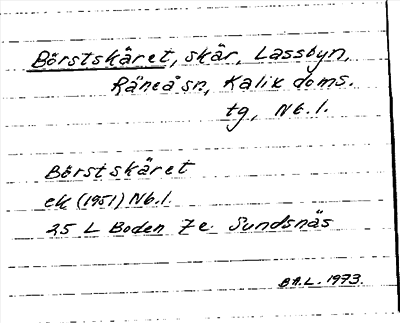 Börstskäret, skär, Lassbyn,
Råneå sn, Kalix doms.
tg, Nb.l.
Börstskäret
ek (1951) Nb.l.
25 L Boden 7 e Sundsnäs
B.A.L. 1973.